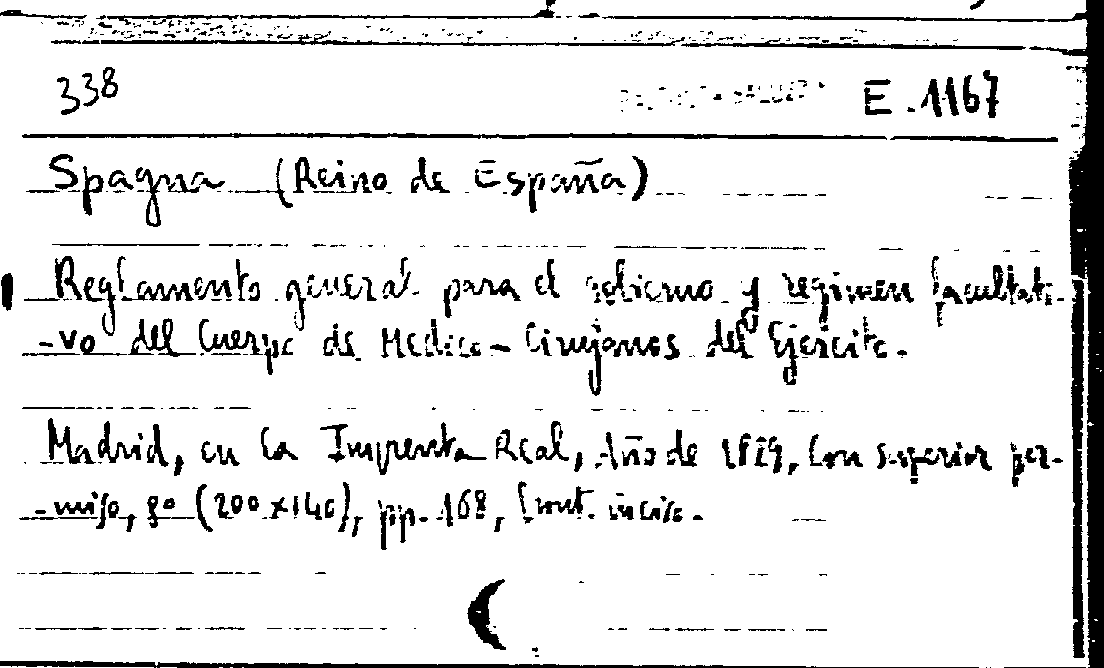 338 E.1167
Spagna (Reino de España)
Reglamento general para el gobierno y regimen facultati-
-vo del Cuerpo de Medico-Cirujanos del Ejército.
Madrid, en la Imprenta Real, Año de 1829, con superior per-
-miso, 8º (200x140), pp. 168, front. inciso.